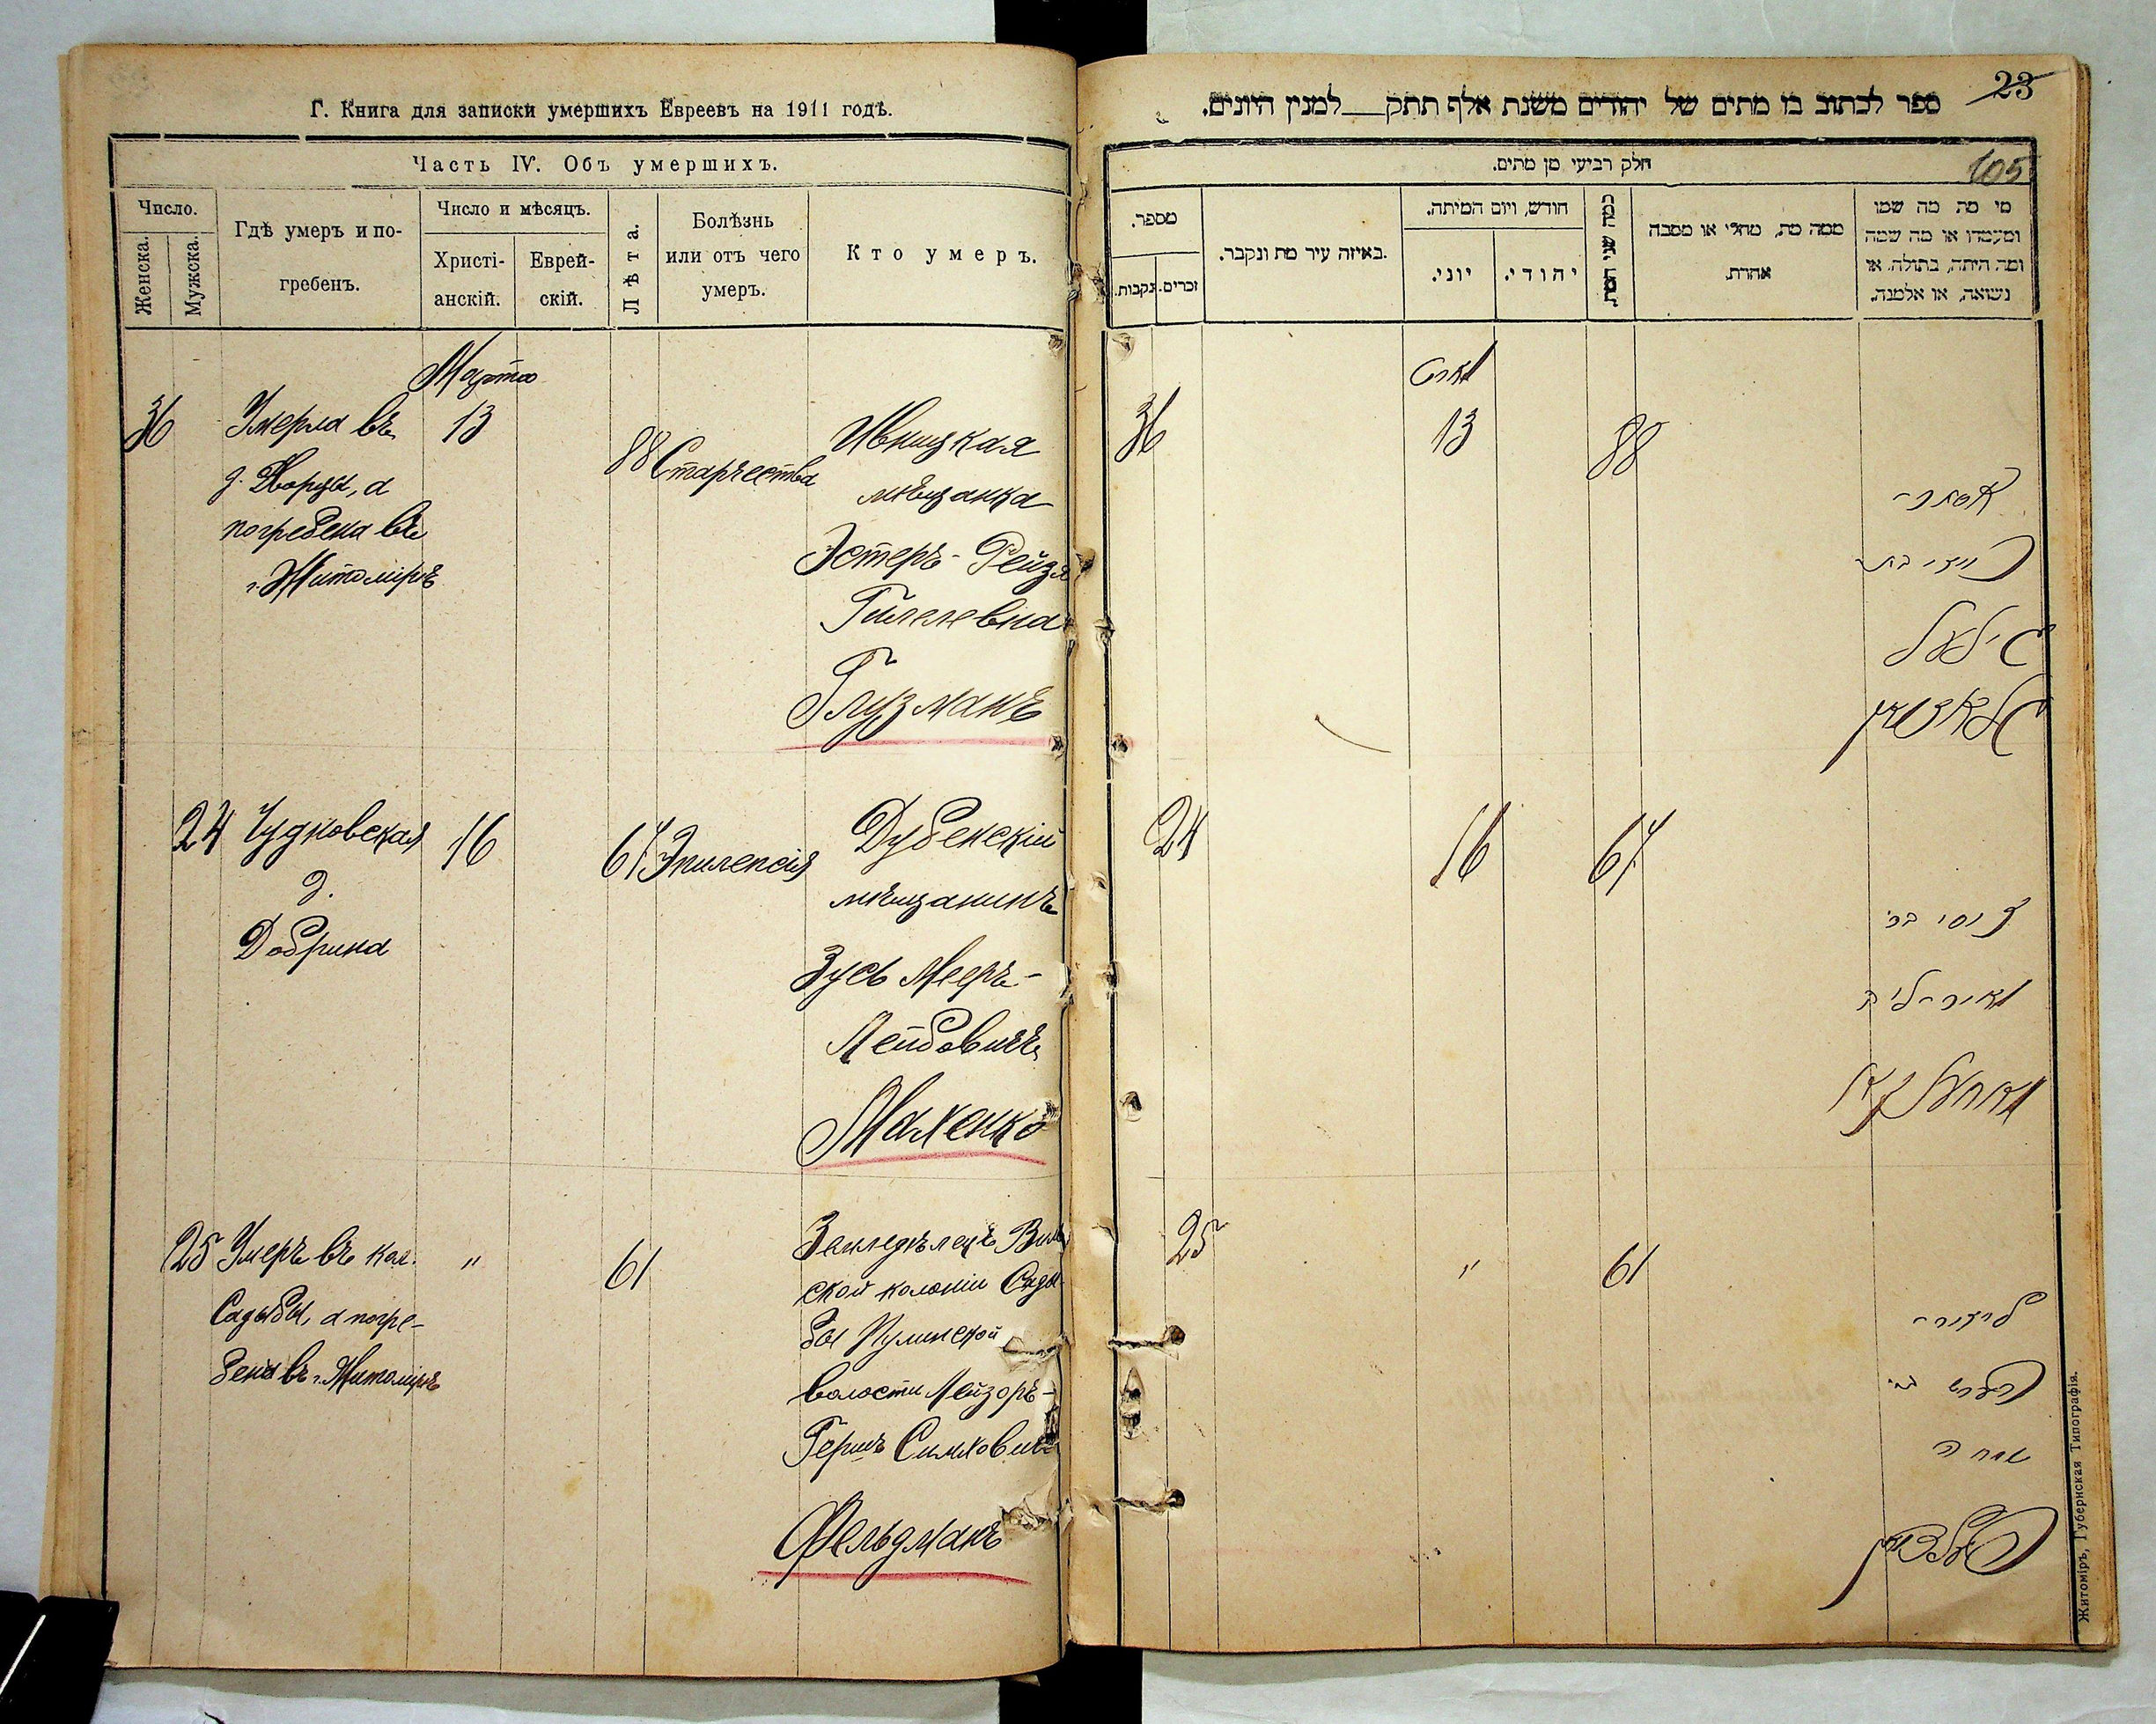 Г. Книга для записки умершихъ Евреевъ на 1911 годъ.
Часть IV. Объ умершихъ.
Число.
Женска.
Мужска.
Гдѣ умеръ и по-
гребенъ.
Число и мѣсяцъ.
Христі-
анскій.
Еврей-
скій.
Лѣта.
Болѣзнь
или отъ чего
умеръ.
Кто умеръ.
Марта
36
Умерла въ
д. Дворцы, а
погребена въ
г. Житомірѣ
13
88
Старчества
Ивницкая
мѣщанка
Эстеръ-Рейзя
Гилелевна
Глузманъ
24
Чудновская
д.
Добрина
16
Эпилепсія
Дубенскій
мѣщанинъ
Зусь Мееръ-
Лейбовичъ
Махенко
25
Умеръ въ кол.
Садыбы, а погре-
бенъ въ г. Житомірѣ
"
61
Земледѣлецъ
ской колоніи Сады
бы Пулинской
волости Лейзоръ-
Гершъ Симховичъ
Фельдманъ
23
ספר לכתוב בו מתים של יהודים משנת אלף תתק__למנין היונים.
105
חלק רביעי מן מתים.
מספר.
נקבות.
זכרים.
באיזה עיר מת ונקבר.
חודש, ויום המיתה.
יוני.
יהודי.
כמה שני המת.
ממה מת, מחלי או מסבה
אחרת.
מי מת מה שמו
ומעמדו או מה שמה
ומה היתה, בתולה, או
נשואה, או אלמנה.
מארט
36
13
88
אסתר-
רייזי בת
הילעל
גלאזמאן
24
16
זוסי בר'
מאיר-ליב
25
"
61
לייזור-
הערש בר'
שמחה
פעלדמאן
Житоміръ, Губернская Типографія.